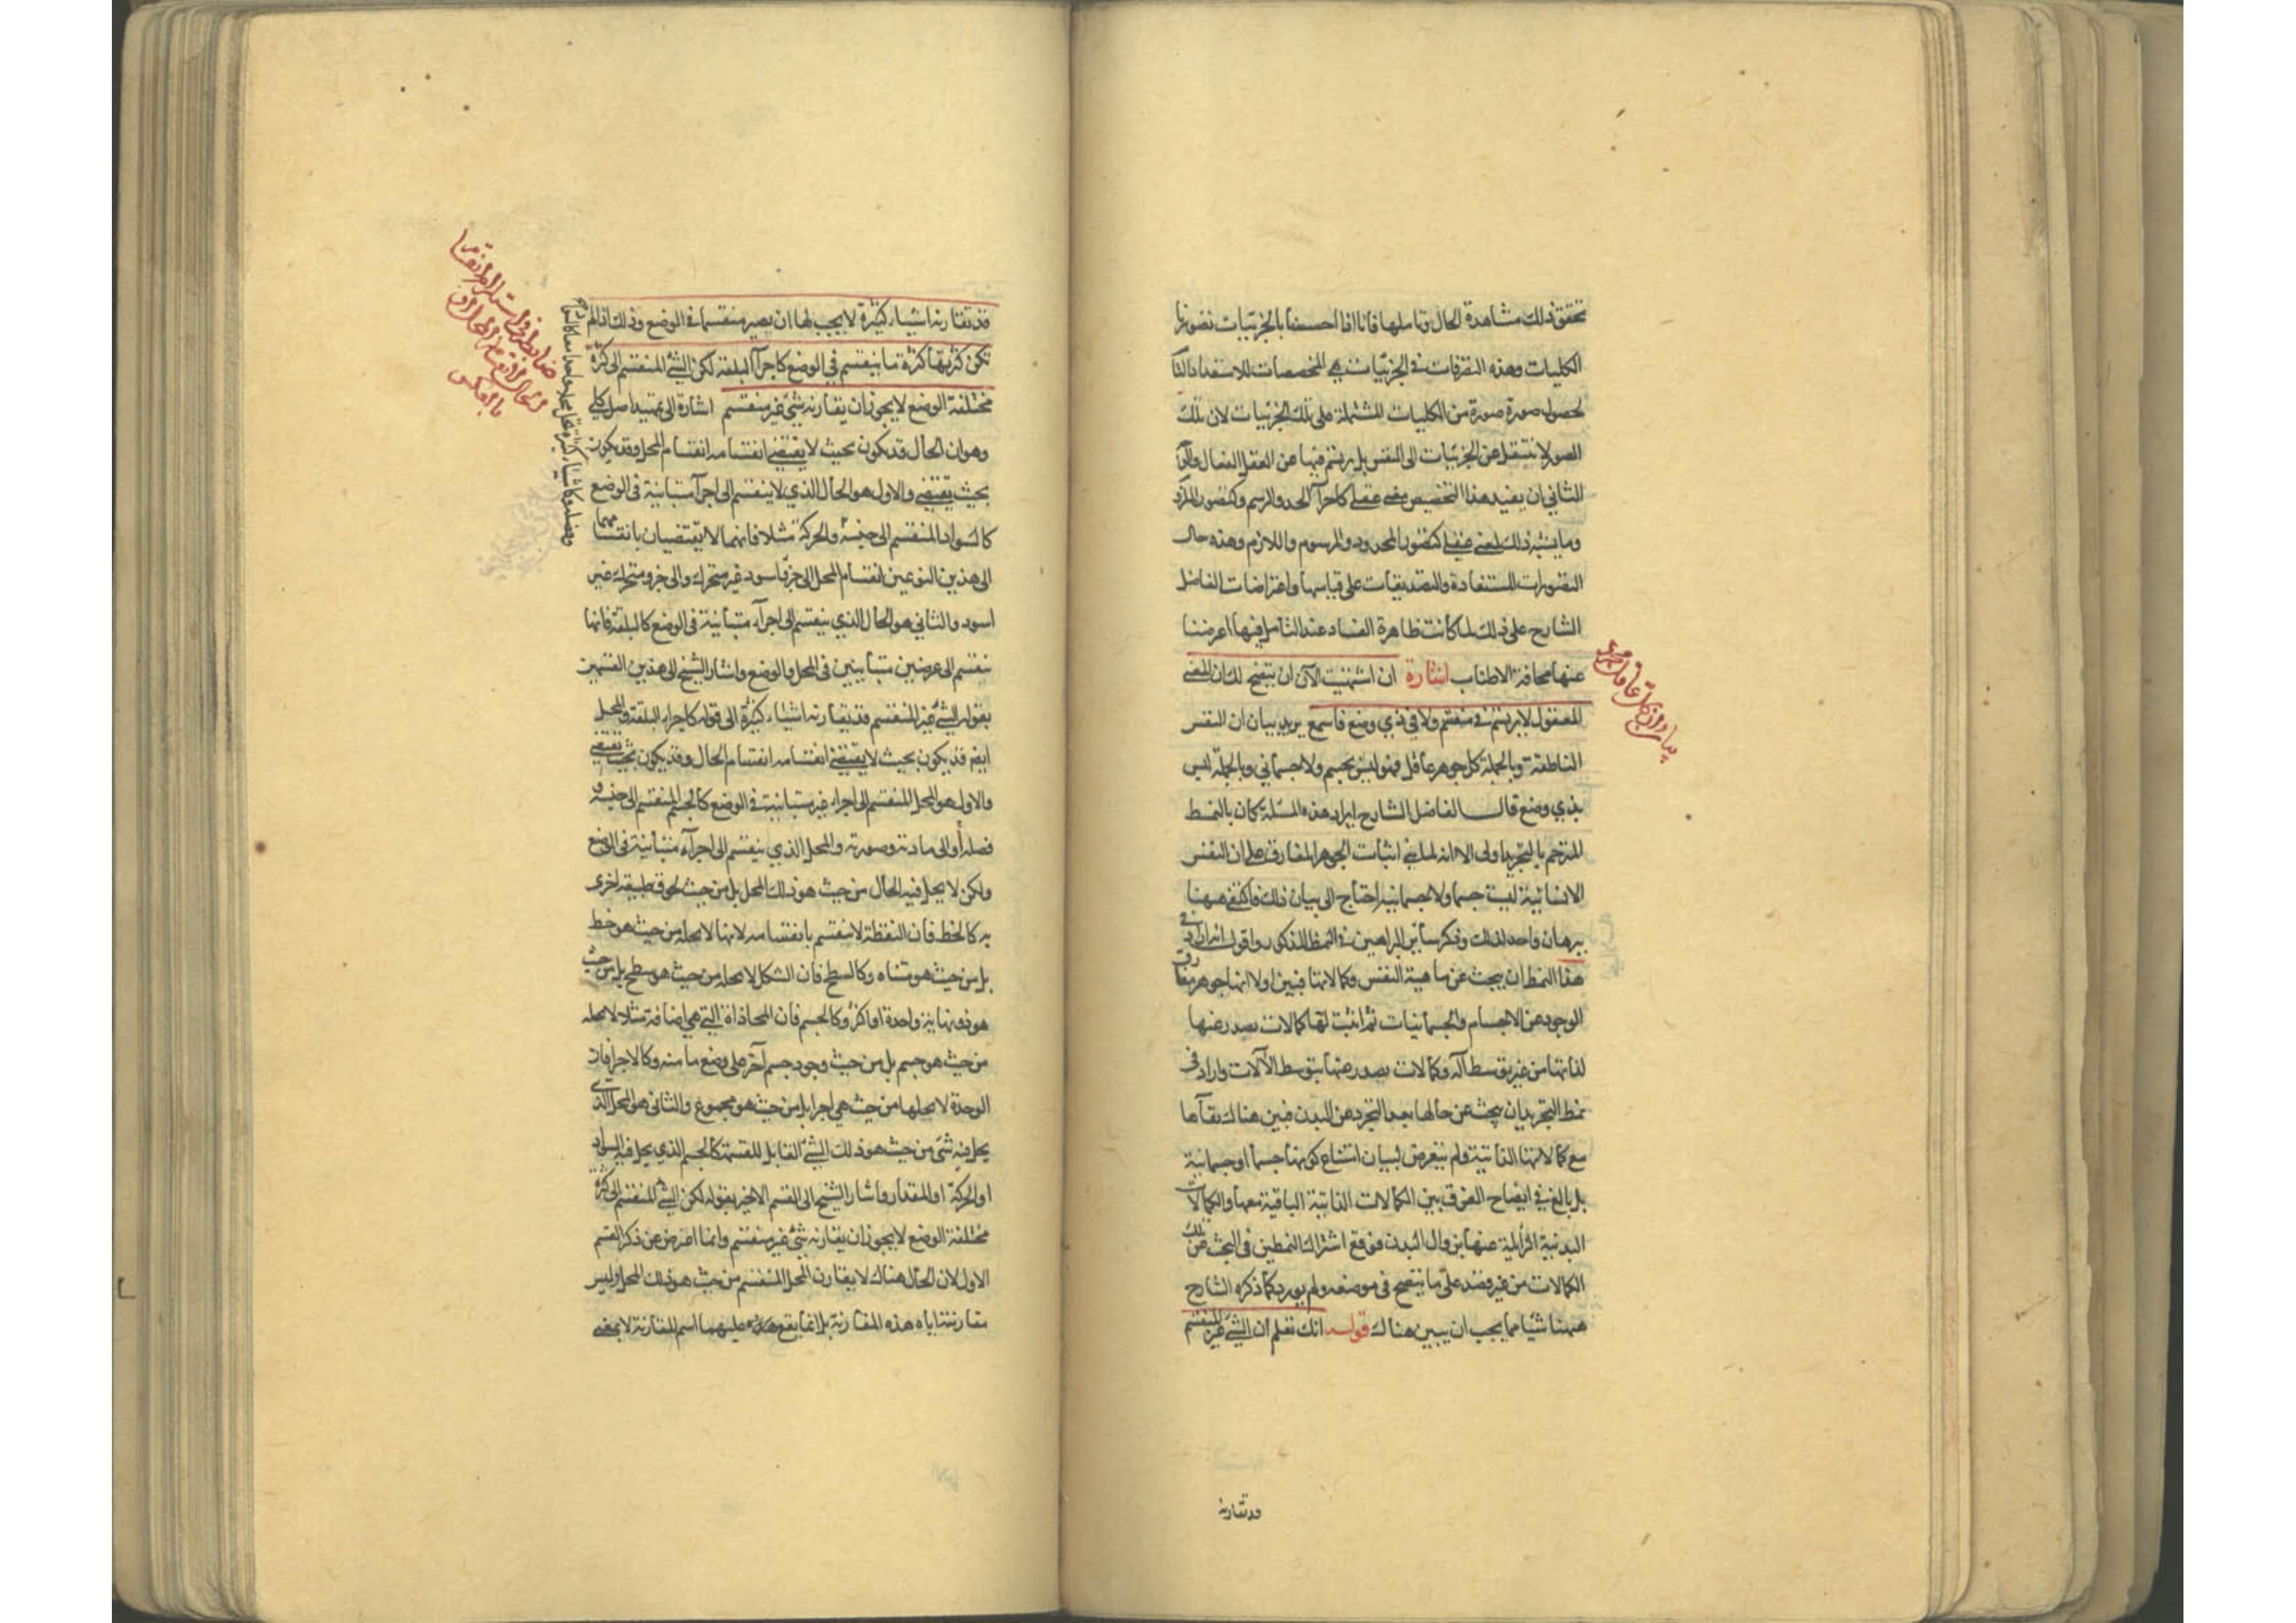 تحقق ذلك مشاهدة الحال وتاملها فانا اذا احسسنا بالجزئيات تصورنا
الكليات وهذه التصرفات في الجزئيات هي المخصصات للاستعداد التام
لحصول صورة صورة من الكليات المشتملة على تلك الجزئيات لان تلك
الصور لا تنتقل عن الجزئيات الى النفس بل يرتسم فيها عن العقل الفعال والوجه
الثاني ان يفيد هذا التخصيص معنى عقلي كاجزآ الحد والرسم وكتصور الملزوم
وما يشبه ذلك لمعنى عقلي كتصور المحدود والمرسوم واللازم وهذه حال
التصورات المستفادة والتصديقات على قياسها واعتراضات الفاضل
الشارح على ذلك لما كانت ظاهرة الفساد عند التامل فيها اعرضنا
عنها مخافة الاطناب اشارة ان اشتهيت الآن ان يتضح لك ان المعنى
المعقول لا يرتسم في منقسم ولا في ذي وضع فاسمع يريد بيان ان النفس
الناطقة وبالجملة كل جوهر عاقل فهو ليس بجسم ولا جسماني وبالجملة ليس
بذي وضع قال الفاضل الشارح ايراد هذه المسئلة كان بالنمط
المترجم بالتجريد اولى الا انه لما بنى اثبات الجوهر المفارق على ان النفس
الانسانية ليست جسما ولا جسمانية احتاج الى بيان ذلك فاكتفى ههنا
ببرهان واحد لذلك وذكر سائر البراهين في النمط المذكور واقول انه اراد في
هذا النمط ان يبحث عن ماهية النفس وكمالاتها فبين اولا انها جوهر مفارق
الوجود عن الاجسام والجسمانيات ثم اثبت لها كمالات يصدر عنها
لذاتها من غير توسط آله وكمالات يصدر عنها بتوسط الآلات واراد في
نمط التجريد ان يبحث عن حالها بعد التجرد عن البدن فبين هناك بقآها
مع كمالاتها الذاتية ولم يتعرض لبيان امتناع كونها جسما او جسمانية
بل بالغ في ايضاح الفرق بين الكمالات الذاتية الباقية معها والكمالات
البدنية الزايلة عنها بزوال البدن فوقع اشتراك النمطين في البحث عن تلك
الكمالات من غير قصد على ما يتضح في موضعه ولم يورد كما ذكره الشارح
ههنا شيا مما يجب ان يبين هناك قوله انك تعلم ان الشئ غير المنقسم
قد تقارنه
بيان ان كل عاقل مجرد
قد تقارنه اشياء كثيرة لا يجب لها ان يصير منقسما في الوضع وذلك اذا لم
تكن كثرتها كثرة ما ينقسم في الوضع كاجزآ البلقة لكن الشئ المنقسم الى كثرة
مختلفة الوضع لا يجوز ان يقارنه شئ غير منقسم اشارة الى تمهيد اصل كلي
وهو ان الحال قد يكون بحيث لا يقتضي انقسامه انقسام المحل وقد يكون
بحيث يقتضي والاول هو الحال الذي لا ينقسم الى اجزآ متباينة في الوضع
كالسواد المنقسم الى جنسه والحركة مثلا فانهما لا يقتضيان بانقسامهما
الى هذين النوعين انقسام المحل الى جزء اسود غير متحرك والى جزو متحرك غير
اسود والثاني هو الحال الذي ينقسم الى اجزآء متباينة في الوضع كالبلقة فانها
تنقسم الى عرضين متباينين في المحل والوضع واشار الشيخ الى هذين القسمين
بقوله الشئ غير المنقسم قد تقارنه اشياء كثيرة الى قوله كاجزاء البلقة والمحل
ايضا قد يكون بحيث لا يقتضي انقسامه انقسام الحال وقد يكون بحيث يقتضي
والاول هو المحل المنقسم الى اجزاء غير متباينة في الوضع كالجسم المنقسم الى جنسه و
فصله أو الى مادته وصورته والمحل الذي ينقسم الى اجزآء متباينة في الوضع
ولكن لا يحل فيه الحال من حيث هو ذلك المحل بل من حيث لحوق طبيعة اخرى
به كالخط فان النقطة لا تنقسم بانقسامه لانها لا تحله من حيث هو خط
بل من حيث هو متناه وكالسطح فان الشكل لا يحله من حيث هو سطح بل من حيث
هو ذو نهاية واحدة او اكثر وكالجسم فان المحاذاة التي هي اضافة مثلا لا تحله
من حيث هو جسم بل من حيث وجود جسم آخر على وضع ما منه وكالاجزا فان
الوحدة لا تحلها من حيث هي اجزا بل من حيث هو مجموع والثاني هو المحل الذي
يحل فيه شئ من حيث هو ذلك الشئ القابل للقسمة كالجسم الذي يحل فيه السواد
او الحركة او المقدار واشار الشيخ الى القسم الاخير بقوله لكن الشئ المنقسم الى كثرة
مختلفة الوضع لا يجوز ان يقارنه شئ غير منقسم وانما اعرض عن ذكر القسم
الاول لان الحال هناك لا يقارن المحل المنقسم من حيث هو ذلك المحل وليس
مقارنته اياه هذه المقارنة بل انما يقع عليهما اسم المقارنة لا بمعنى